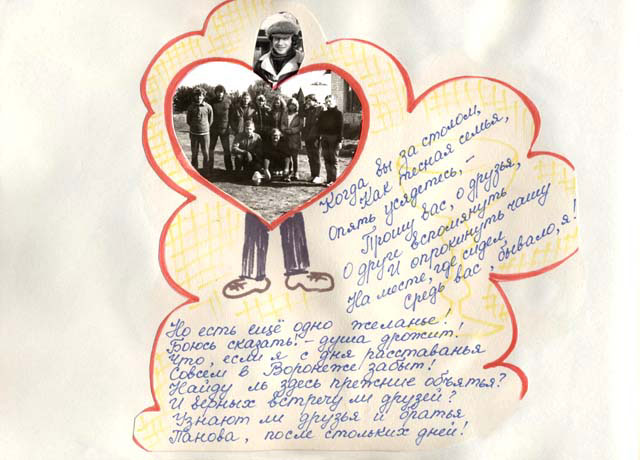 Когда вы за столом,
Как тесная семья,
Опять усядетесь, –
Прошу вас, о друзья,
О друге вспомянуть
И опрокинуть чашу
На месте, где сидел
Средь вас, бывало, я!
Но есть ещё одно желанье!
Боюсь сказать! – душа дрожит!
Что, если я с дня расставанья
Совсем в Воронеже забыт!
Найду ль здесь прежние объятья?
И верных встречу ли друзей?
Узнают ли друзья и братья
Панова, после стольких дней!